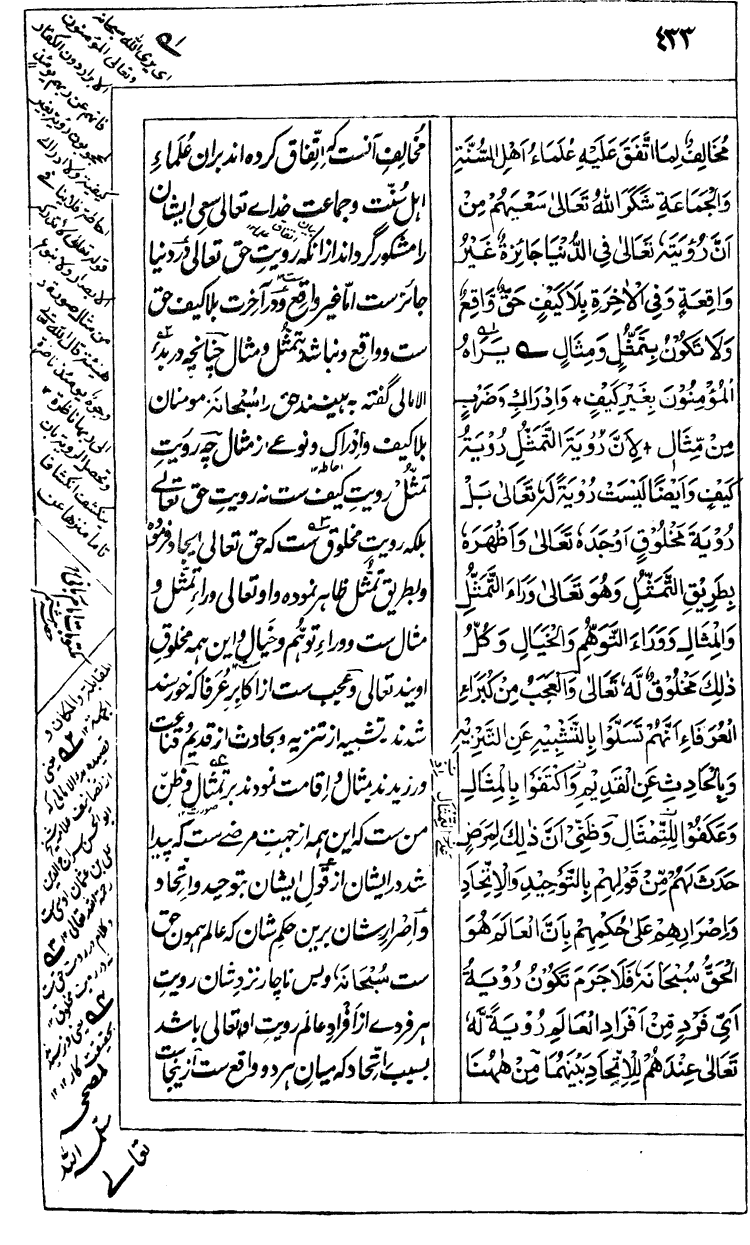 ٤٣٣
مُخَالِفٌ لِمَا اتَّفَقَ عَلَيْهِ عُلَمَاءُ اَهْلِ السُّنَّةِ
وَالْجَمَاعَةِ شَكَرَ اللهُ تَعَالٰى سَعْيَهُمْ مِنْ
اَنَّ رُؤيَتَهٗ تَعَالٰى فِي الدُّنْيَا جَائِزَةٌ غَيْرُ
وَاقِعَةٍ وَفِي الْاٰخِرَةِ بِلَا كَيْفٍ حَقٌّ وَاقِعٌ
وَلَا تَكُوْنُ بِتَمَثُّلٍ وَمِثَالٍ يَرَاهُ
الْمُؤْمِنُوْنَ بِغَيْرِ كَيْفٍ + وَاِدْرَاكٍ وَضَرْبٍ
مِنْ مِّثَالٍ + لِاَنَّ رُوْيَةَ التَّمَثُّلِ رُوْيَةُ
كَيْفٍ وَاَيْضًا لَيْسَتْ رُوْيَةً لَهٗ تَعَالٰى بَلْ
رُوْيَةُ مَخْلُوْقٍ اَوْجَدَهٗ تَعَالٰى وَاَظْهَرَهٗ
بِطَرِيْقِ التَّمَثُّلِ وَهُوَ تَعَالٰى وَرَاءَ التَّمَثُّلِ
وَالْمِثَالِ وَوَرَاءَ التَّوَهُّمِ وَالْخَيَالِ وَكُلُّ
ذٰلِكَ مَخْلُوْقٌ لَهٗ تَعَالٰى وَالْعَجَبُ مِنْ كُبَرَاءِ
الْعُرَفَاءِ اَنَّهُمْ تَسَلَّوْا بِالتَّشْبِيْهِ عَنِ التَّنْزِيْهِ
وَبِالْحَادِثِ عَنِ الْقَدِيْمِ وَاكْتَفَوْا بِالْمِثَالِ
وَعَكَفُوْا لِلتِّمْثَالِ وَظَنِّيْ اَنَّ ذٰلِكَ لِمَرَضٍ
حَدَثَ لَهُمْ مِّنْ قَوْلِهِمْ بِالتَّوْحِيْدِ وَالْاِتِّحَادِ
وَاِصْرَارِهِمْ عَلٰى حُكْمِهِمْ بِاَنَّ الْعَالَمَ هُوَ
الْحَقُّ سُبْحَانَهٗ فَلَا جَرَمَ تَكُوْنُ رُوْيَةُ
اَيِّ فَرْدٍ مِّنْ اَفْرَادِ الْعَالَمِ رُوْيَةً لَهٗ
تَعَالٰى عِنْدَهُمْ لِلْاِتِّحَادِ بَيْنَهُمَا مِنْ هٰهُنَا
مخالف آنست که اتفاق کرده اند بران علماءِ
اہل سنت و جماعت خداے تعالی سعی ایشان
را مشکور گرداند ازانکہ رویتِ حق تعالی در دنیا
جائز ست امّا غیر واقع و در آخرت بلا کیف حق
ست و واقع و نباشد بتمثل و مثال چنانچہ در بدءُ
الامالی گفتہ بہ بینند حق را سبحانہ مومنان
بلا کیف و ادراک و نوعے از مثال چہ رویتِ
تمثل رویتِ کیف ست نہ رویتِ حق تعالے
بلکہ رویتِ مخلوق ست کہ حق تعالی ایجاد فرموده
و بطریق تمثل ظاہر نموده و او تعالی وراءِ تمثل و
مثال ست و وراءِ توہم و خیال و این ہمہ مخلوقِ
اویند تعالی و عجب ست از اکابر عرفا کہ خورسند
شدند بتشبیہ از تنزیہ و بحادث از قدیم و قناعت
ورزیدند بمثال و اقامت نمودند بر تمثال و ظنّ
من ست کہ این ہمہ از جہتِ مرضے ست کہ پیدا
شد در ایشان از قول ایشان بتوحید و اتحاد
و اصرارِ شان برین حکم شان کہ عالم ہمون حق
ست سبحانہ و بس ناچار نزد شان رویتِ
ہر فردے از افراد عالم رویتِ او تعالی باشد
بسبب اتحاد کہ میان ہر دو واقع ست از ینجاست
اے یری اللہ سبحانہ
وتعالی المؤمنون
الابرار دون الکفار
فانہم عن ربہم یومئذ
لمحجوبون رؤیتہ بغیر
کیفیۃ ولا ادراک
قولہ تعالی لا تدرکہ
الابصار ولا بنوع
من مثال صورۃ
وجوہ یومئذ ناضرۃ
الی ربہا ناظرۃ
مکتوبات امام ربانی